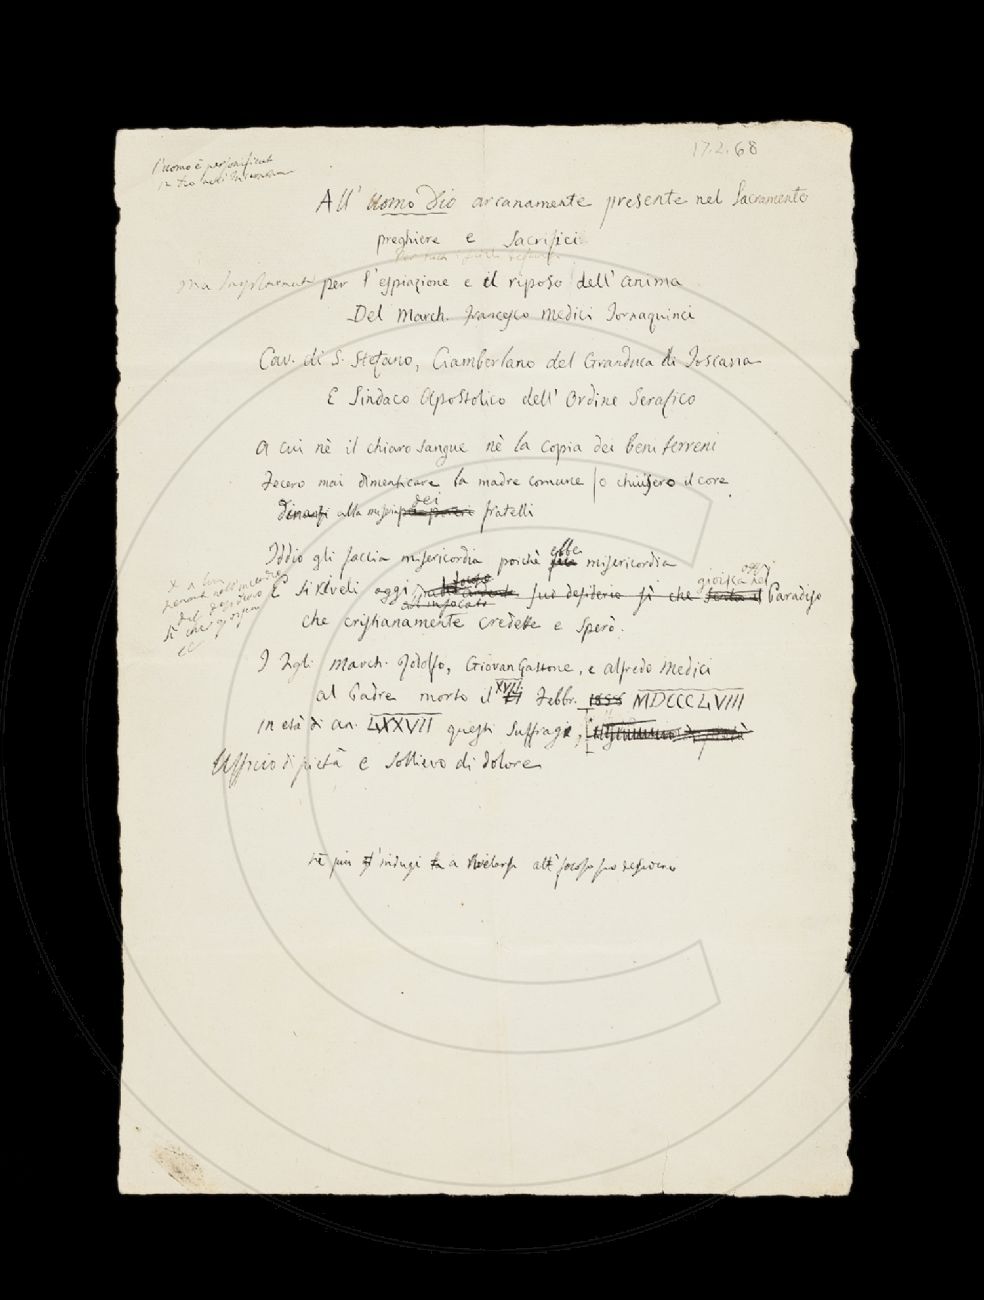 17.2.68
l'uomo è personificat
in Dio
All' Uomo Dio arcanamente presente nel Sacramento
preghiere e Sacrifici
ma per l'espiazione e il riposo dell'anima
Del March. Francesco Medici Tornaquinci
Cav. di S. Stefano, Ciamberlano del Granduca di Toscana
E Sindaco Apostolico dell'Ordine Serafico
A cui nè il chiaro sangue nè la copia dei beni terreni
Fecero mai dimenticare la madre comune / o chiusero il core
dei
dinanzi alla miseria fratelli
ebbe
Iddio gli faccia misericordia poichè misericordia
oggi
gioisca nel
E si riveli oggi suo desiderio sì che Paradiso
infocato
che cristianamente credette e sperò.
nell'incendio
del desiderio
I Figli March. Fodolfo, Giovan Gastone, e Alfredo Medici
XVII
al Padre morto il Febbr. 1858 MDCCCLVIII
in età di an. LXXVII questi Suffragi,
Ufficio di pietà e sollievo di dolore
nè più indugi a rivelarsi all' focoso suo desiderio